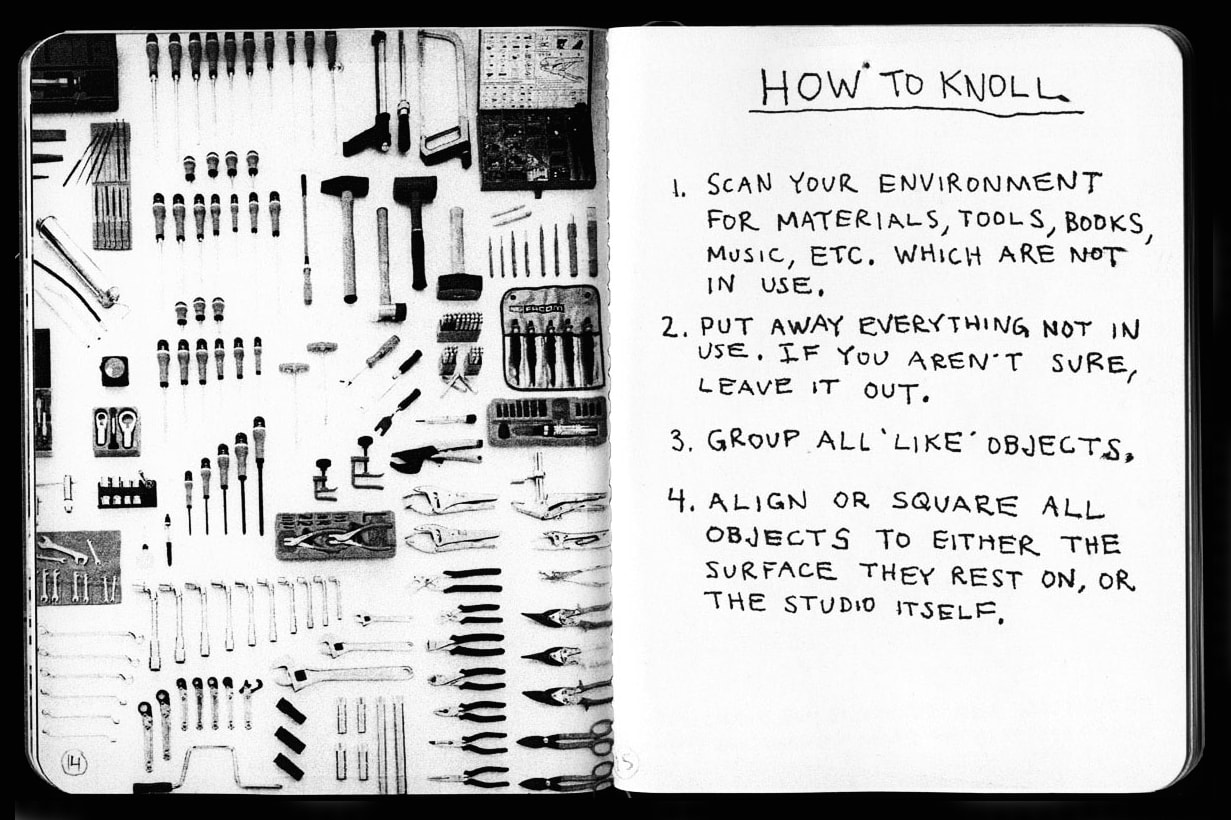 FACOM
14
HOW TO KNOLL
1. SCAN YOUR ENVIRONMENT
FOR MATERIALS, TOOLS, BOOKS,
MUSIC, ETC. WHICH ARE NOT
IN USE.
2. PUT AWAY EVERYTHING NOT IN
USE. IF YOU AREN'T SURE,
LEAVE IT OUT.
3. GROUP ALL 'LIKE' OBJECTS.
4. ALIGN OR SQUARE ALL
OBJECTS TO EITHER THE
SURFACE THEY REST ON, OR
THE STUDIO ITSELF.
15